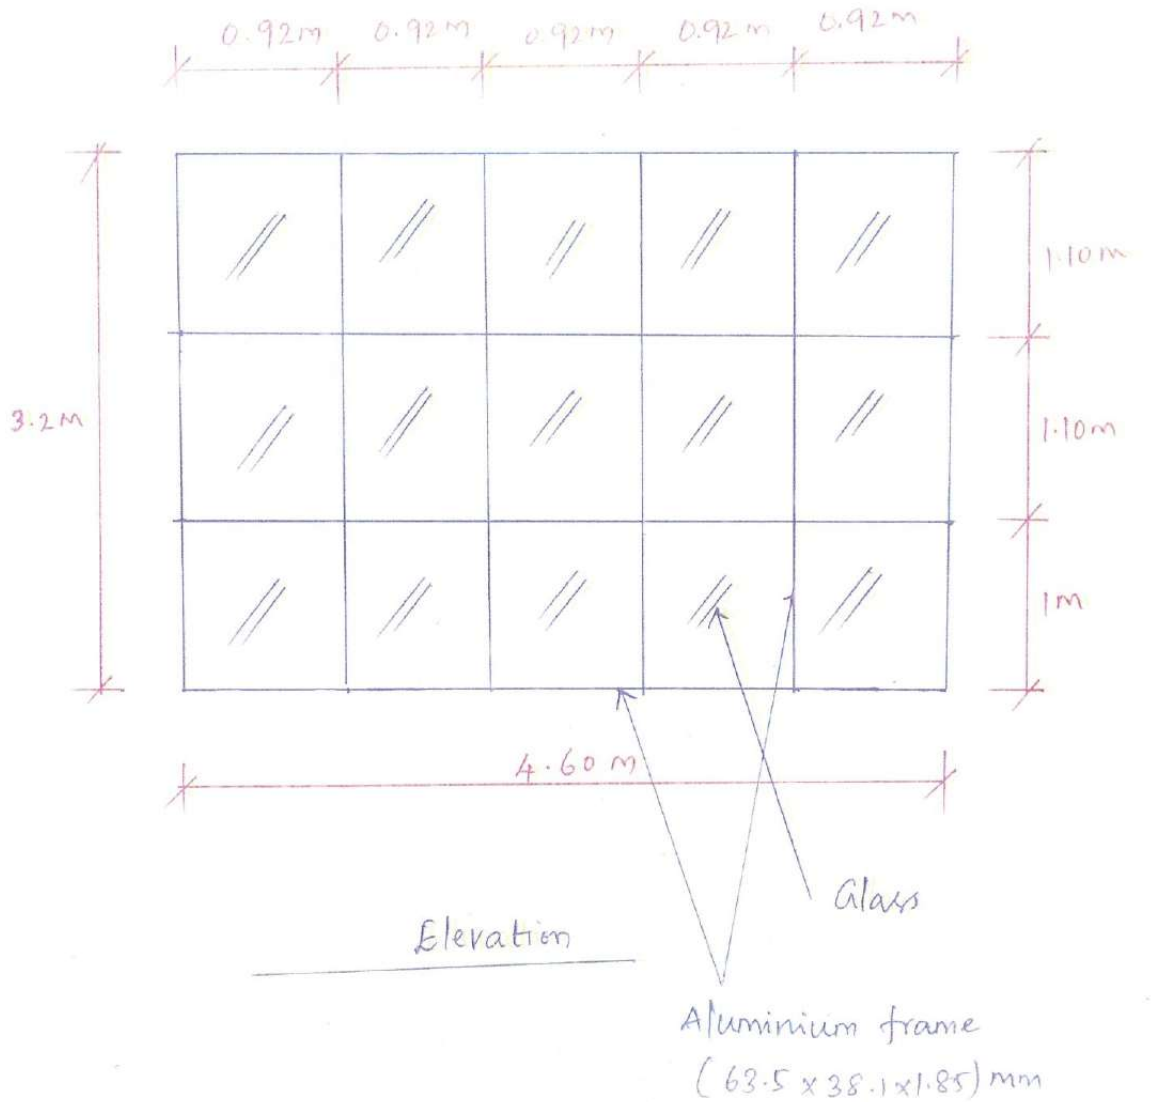 0.92m 0.92m 0.92m 0.92m 0.92m
1.10m
3.2m
1.10m
1m
4.60m
Glass
Elevation
Aluminium frame
(63.5 x 38.1x1.85) mm